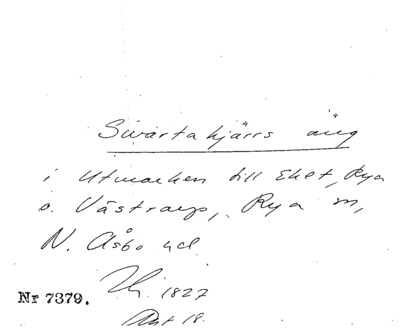 Swartakjärrs äng
i Utmarken till Eket, Rya
o. Västraryp, Rya sn,
N. Åsbo hd.
1827
Nr 7379.
Akt 18.